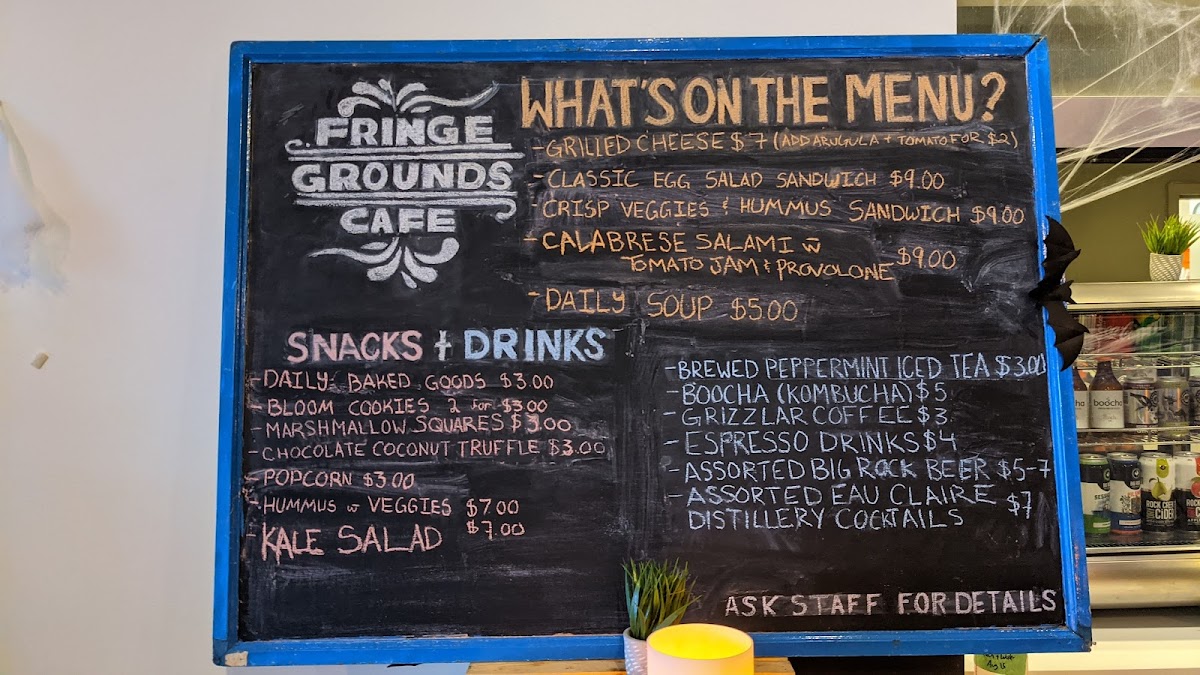 FRINGE
GROUNDS
CAFE
WHAT'S ON THE MENU?
-GRILLED CHEESE $7 (ADD ARUGULA + TOMATO FOR $2)
-CLASSIC EGG SALAD SANDWICH $9.00
-CRISP VEGGIES & HUMMUS SANDWICH $9.00
-CALABRESE SALAMI w̄
TOMATO JAM & PROVOLONE $9.00
-DAILY SOUP $5.00
SNACKS + DRINKS
-DAILY BAKED GOODS $3.00
-BLOOM COOKIES 2 for $3.00
-MARSHMALLOW SQUARES $3.00
-CHOCOLATE COCONUT TRUFFLE $3.00
-POPCORN $3.00
-HUMMUS w VEGGIES $7.00
-KALE SALAD $7.00
-BREWED PEPPERMINT ICED TEA $3.00
-BOOCHA (KOMBUCHA) $5
-GRIZZLAR COFFEE $3
-ESPRESSO DRINKS $4
-ASSORTED BIG ROCK BEER $5-7
-ASSORTED EAU CLAIRE $7
DISTILLERY COCKTAILS
ASK STAFF FOR DETAILS
boocha
ROCK CREEK
CIDER